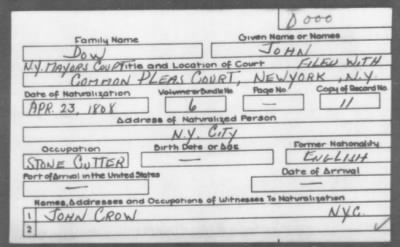 D 000
Family Name Given Name or Names
DOW JOHN
N.Y. MAYORS COURT Title and Location of Court FILED WITH
COMMON PLEAS COURT, NEW YORK, N.Y.
Date of Naturalization Volume or Bundle No. Page No. Copy of Record No.
APR. 23, 1808 6 — 11
Address of Naturalized Person
N.Y. CITY
Occupation Birth Date or Age Former Nationality
STONE CUTTER — ENGLISH
Port of Arrival in the United States Date of Arrival
— —
Names, Addresses and Occupations of Witnesses To Naturalization
1 JOHN CROW NYC.
2